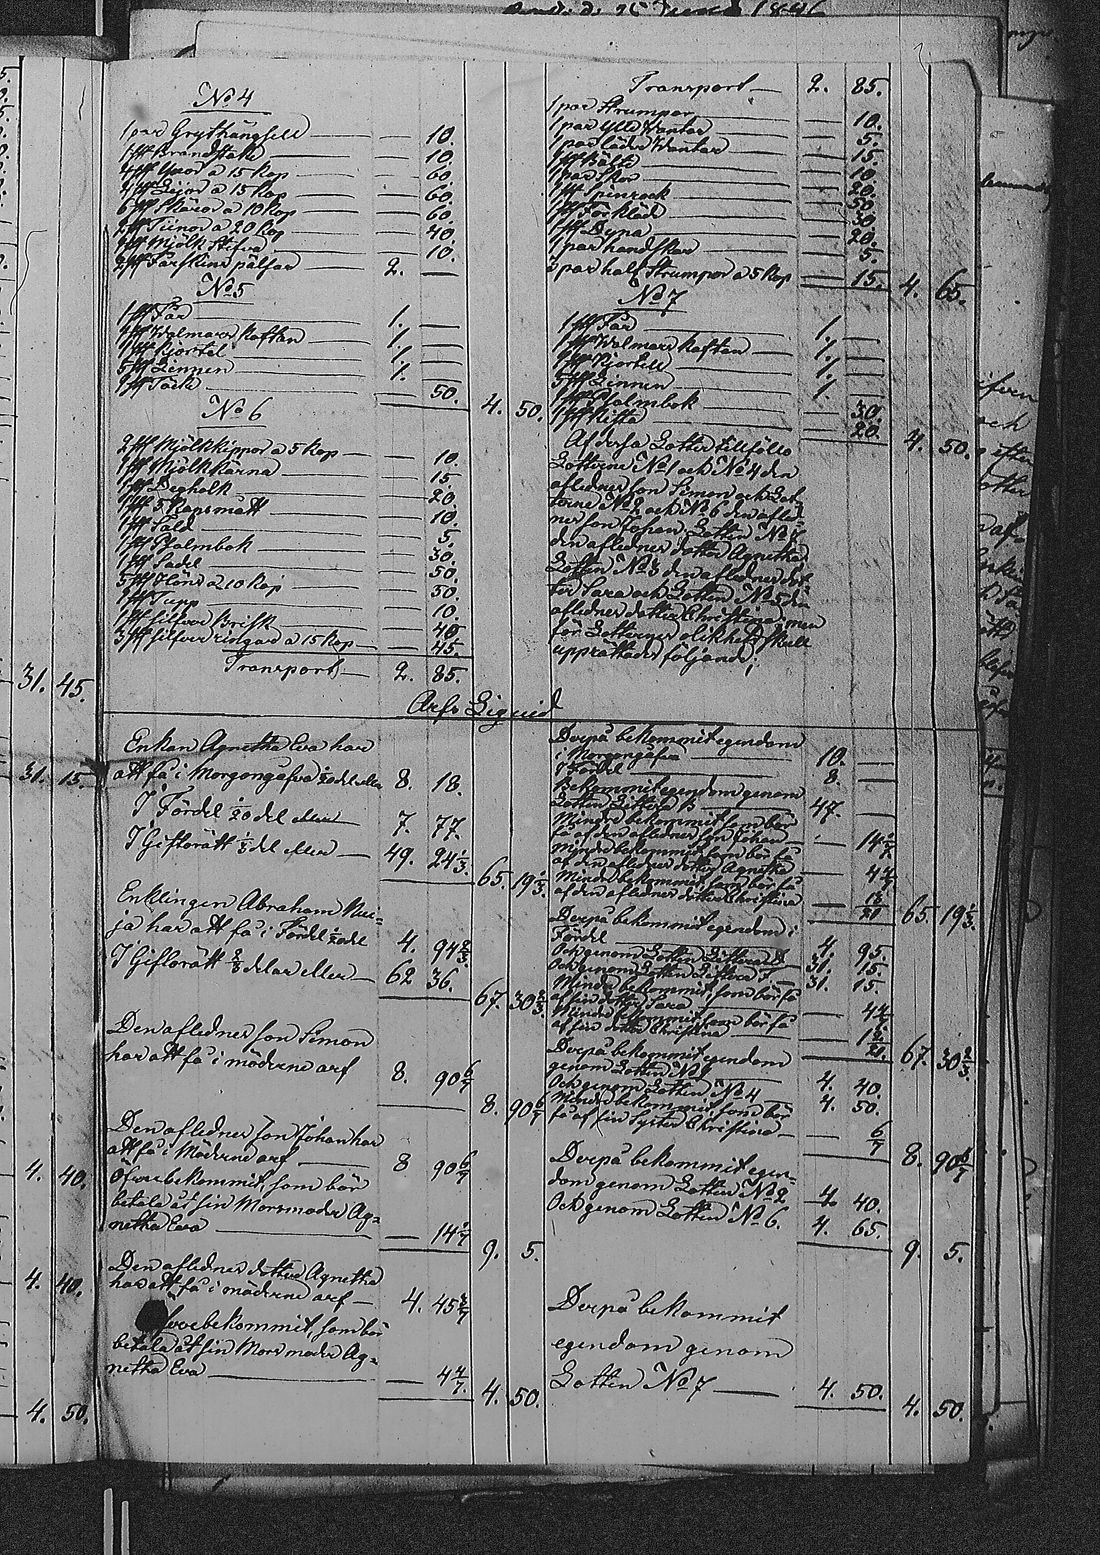 31. 45.
31. 15.
4. 40.
4. 40.
4. 50.
No 4
1 par Grythängsle — — 10.
1 st Brandstake — — 10.
4 st Yxor a 15 Kop — — 60.
4 st Lijor a 15 Kop — — 60.
6 st Skäror a 10 Kop — — 60.
2 st Tinor a 20 Kop — — 40.
1 st Mjölk Stefva — — 10.
2 st Fårskins pältsar — 2. —
No 5
1 st Får — 1. —
1 st Walmars Kaftan — 1. —
1 st Kjortel — 1. —
5 st Linnen — 1. —
1 st Täcke — — 50.
4. 50.
No 6
2 st Mjölkkippor a 5 Kop — — 10.
1 st Mjölkkärna — — 15.
1 st Degholk — — 20.
1 st 5 Kapsmått — — 10.
1 st Såld — — 5.
1 st Psalmbok — — 30.
1 st Sadel — — 50.
5 st Höns a 10 Kop — — 50.
1 st Tupp — — 10.
1 st silfver Brisk — — 40.
3 st silfver ringar a 15 Kop — — 45.
Transport — 2. 85.
Transport — 2. 85.
1 par Strumpor — — 10.
1 par Ylle Wantar — — 5.
1 par läder Wantar — — 15.
1 st Bälte — — 10.
1 par Skor — — 20.
1 st Spinrock — — 50.
1 st Förkläd — — 30.
1 st Dyna — — 20.
1 par handskar — — 5.
3 par half Strumpor a 5 Kop — — 15.
4. 65.
No 7
1 st Får — 1. —
1 st Walmars Kaftan — 1. —
1 st Kjortell — 1. —
5 st Linnen — 1. —
1 st Psalmbok — — 30.
1 st Kista — — 20.
4. 50.
Af dessa Lotter tillföllo
Lotterne No 1 och No 4 den
aflednes son Simon och Lot-
terne No 2 och No 6 den afled-
nes son Johan, Lotten No 7
den aflednes dotter Agnetha
Lotten No 3 den aflednes dot-
ter Sara och Lotten No 5 den
aflednes dotter Christina; men
för Lotternes olikhet skull
upprättades följande;
Arfs Liqvid
Enkan Agnetha Eva har
att få i Morgongåfva 1/20 del eller 8. 18.
I Fördel 1/20 del eller — 7. 77.
I Giftorätt 1/3 del eller — 49. 24 1/3.
65. 19 1/3.
Enklingen Abraham
har att få i Fördel 1/20 del 4. 94 2/3.
I Giftorätt 2/3 delar eller — 62 36.
67. 30 2/3.
Den aflednes son Simon
har att få i möderne arf 8. 90 6/7
8. 90 6/7
Den aflednes son Johan har
att få i Möderne arf — 8 90 6/7
Öfverbekommit, som bör
betala åt sin Morsmoder Ag-
netha Eva — — 14 1/7
9. 5.
Den aflednes dotter Agnetha
har att få i möderne arf — 4. 45 3/7
Öfverbekommit, som bör
betala åt sin Mors moder Ag-
netha Eva — — 4 4/7.
4. 50.
Derpå bekommit egendom
i Morgongåfva — 10. —
I Fördel — 8. —
Bekommit egendom genom
Lotten Littera B — 47. —
Mindre bekommit som bör
få af den aflednes son Johan — — 14 1/7
Mindre bekommit som bör få
af den aflednes dotter Agnetha — 4 4/7
Mindre bekommit, som bör få
af den aflednes dotter Christina — 13/21
65. 19 1/3.
Derpå bekommit egendom i
Fördel — 4. 95.
Och genom Lotten Littera — 31. 15.
Och genom Lotten Littera — 31. 15.
Mindre bekommit, som bör få
af sin dotter Sara — — 4 4/7
Mindre bekommit, som bör få
af sin dotter Christina — — 1 2/21.
67. 30 2/3.
Derpå bekommit egendom
genom Lotten No 1 — 4. 40.
Och genom Lotten No 4 — 4. 50.
Mindre bekommit, som bör
få af sin Syster Christina — — 6/7
8. 90 6/7
Derpå bekommit egen-
dom genom Lotten No 2 4. 40.
Och genom Lotten No 6. 4. 65.
9. 5.
Derpå bekommit
egendom genom
Lotten No 7 — 4. 50.
4. 50.